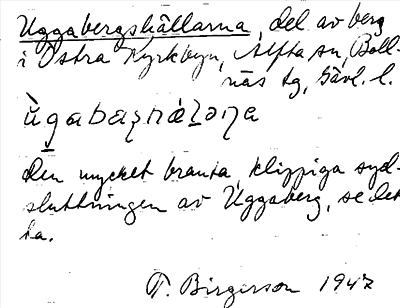 Uggabergshällarna, del av berg
i Östra Kyrkbyn, Alfta sn, Boll-
näs tg, Gävl. l.
den mycket branta, klippiga syd-
sluttningen av Uggaberg, se det-
ta.
T. Birgerson 1947